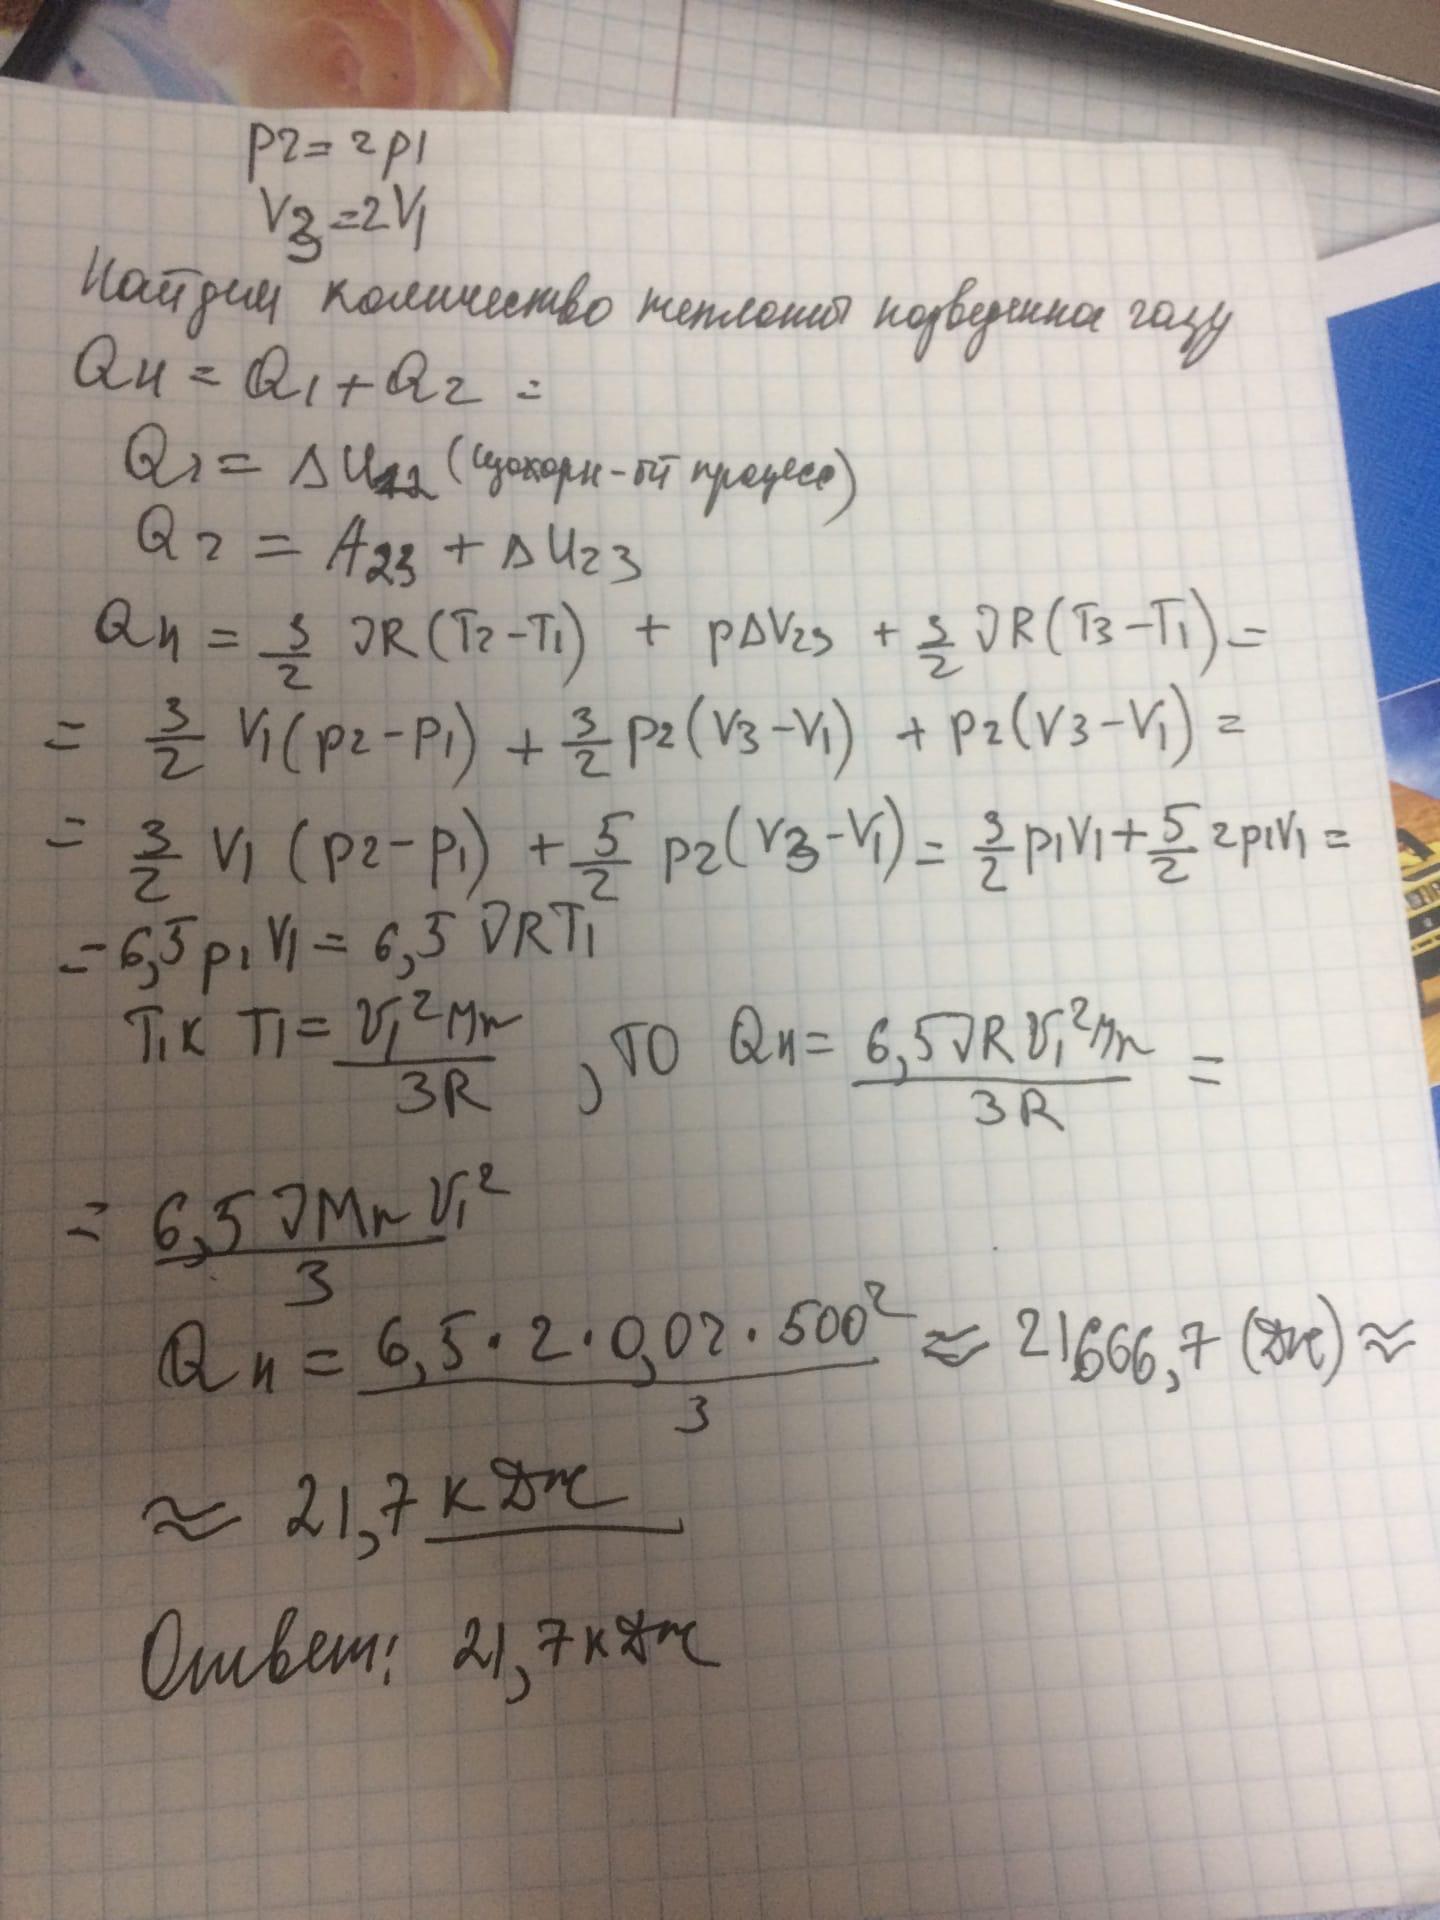 p2 = 2p1
V3 = 2V1
Найдем количество теплоты подведенное газу
Qн = Q1 + Q2 =
Q1 = ΔU12 (изохорн-ый процесс)
Q2 = A23 + ΔU23
Qн = 3/2 νR(T2 - T1) + pΔV23 + 3/2 νR(T3 - T1) =
= 3/2 V1(p2 - p1) + 3/2 p2(V3 - V1) + p2(V3 - V1) =
= 3/2 V1 (p2 - p1) + 5/2 p2(V3 - V1) = 3/2 p1V1 + 5/2 2p1V1 =
= 6,5 p1V1 = 6,5 νRT1
Т.к T1 = v1²Mr / 3R , то Qн = 6,5νRv1²Mr / 3R =
= 6,5νMr v1² / 3
Qн = 6,5 · 2 · 0,02 · 500² / 3 ≈ 21666,7 (Дж) ≈
≈ 21,7 кДж
Ответ: 21,7 кДж